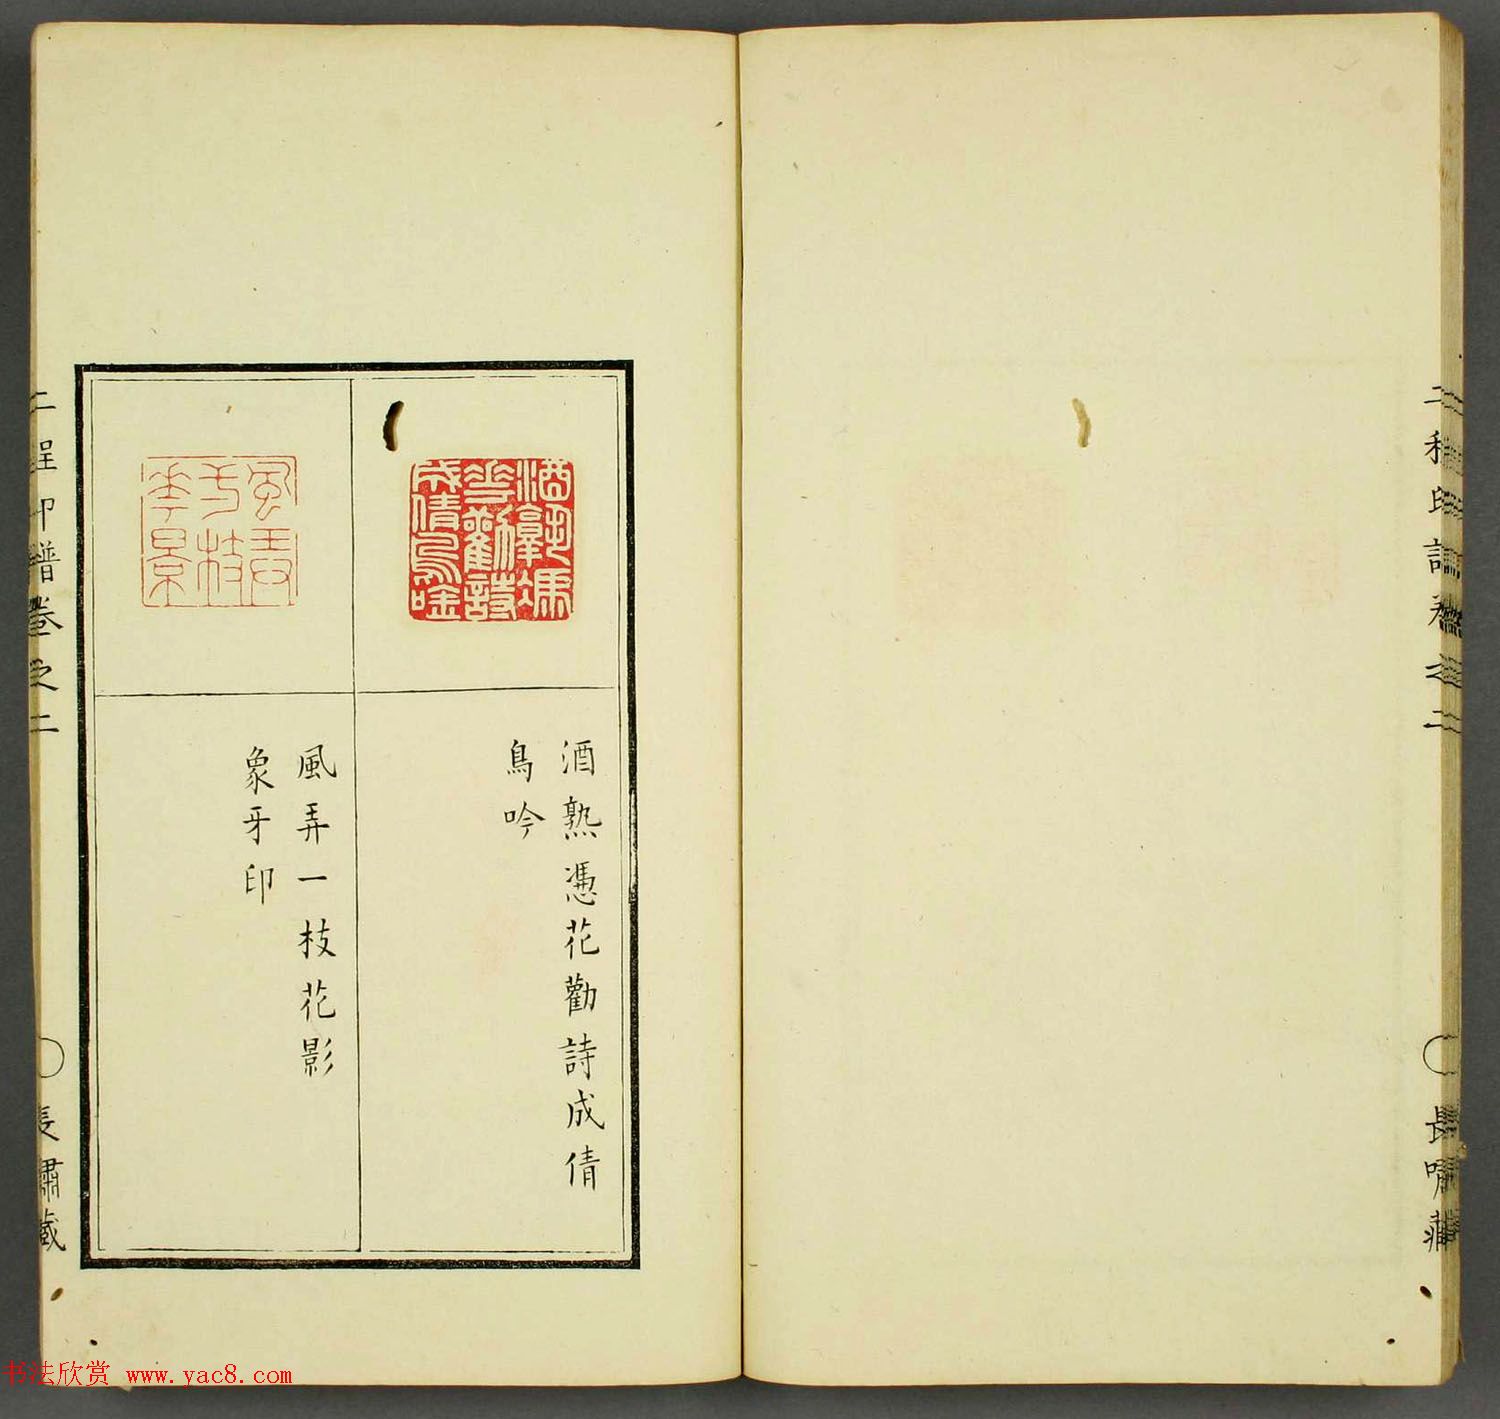 酒熟憑花勸詩成倩
鳥吟
風弄一枝花影
象牙印
二程印譜卷之二
長嘯藏
二程印譜卷之二
長嘯藏
书法欣赏 www.yac8.com